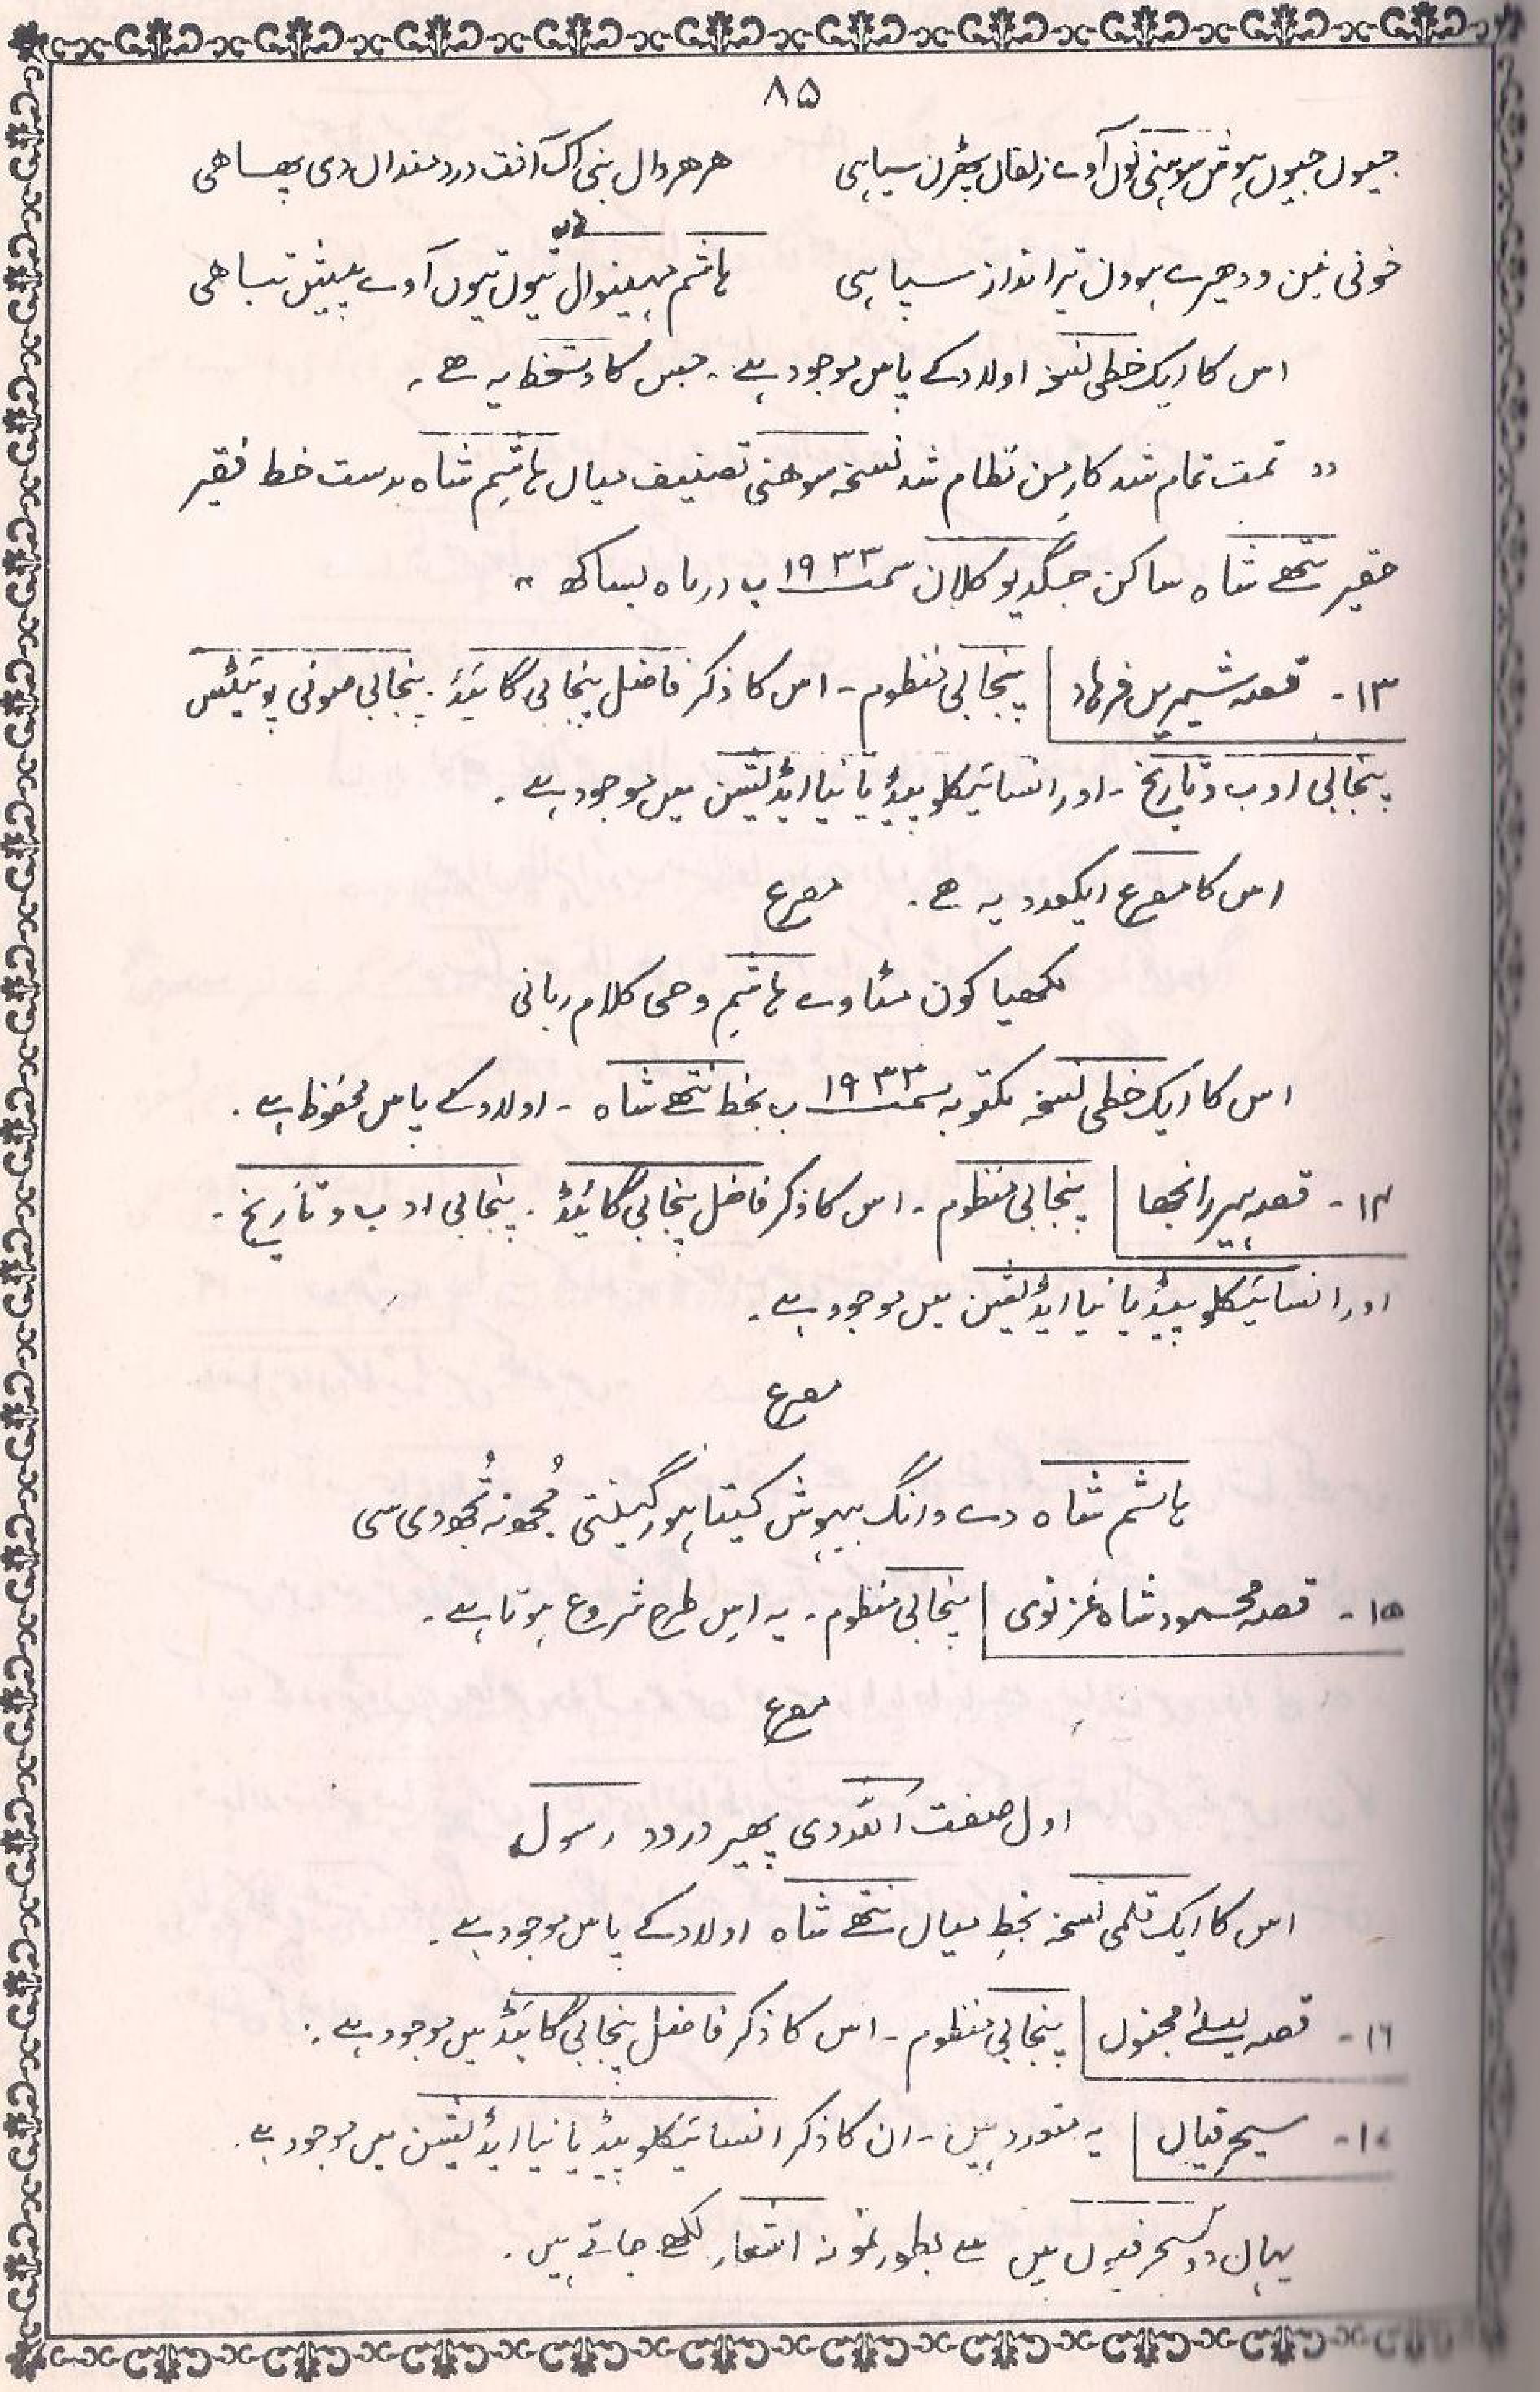 ۸۵
جیوں جیوں ہوش سوہنی نوں آوے زلفاں پھڑن سیاہی ھر ھر وال بنی اک آفت دردمنداں دی پھساھی
خونی نین ودھیرے ہوون تیر انداز سپاہی ہاشم مہینوال تیوں تیوں آوے پیش تباھی
اس کا ایک خطی نسخہ اولاد کے پاس موجود ہے۔ جس کا دستخط یہ ھے۔
"تمت تمام شد کار من نظام شد نسخہ سوھنی تصنیف میاں ہاشم شاہ بدست خط فقیر
حقیر نتھے شاہ ساکن جگدیو کلاں سمت ۱۹۳۳ ب در ماہ بساکھ"
۱۳- قصہ شیریں فرہاد پنجابی منظوم - اس کا ذکر فاضل پنجابی گائیڈ۔ پنجابی صوفی پوئیٹس
پنجابی ادب و تاریخ - اور انسائیکلو پیڈیا نیا ایڈیشن میں موجود ہے۔
اس کا مصرع ایکعدد یہ ھے۔ مصرع
لکھیا کون مٹاوے ہاشم وحی کلام ربانی
اس کا ایک خطی نسخہ مکتوبہ سمت ۱۹۳۳ ب بخط نتھے شاہ - اولاد کے پاس محفوظ ہے۔
۱۴- قصہ ہیر رانجھا پنجابی منظوم - اس کا ذکر فاضل پنجابی گائیڈ۔ پنجابی ادب و تاریخ -
اور انسائیکلو پیڈیا نیا ایڈیشن میں موجود ہے۔
مصرع
ہاشم شاہ دے وانگ بیہوش کیتا ہور گینتی مُجھ نہ تُجھ دی سی
۱۵- قصہ محمود شاہ غزنوی پنجابی منظوم - یہ اس طرح شروع ہوتا ہے۔
مصرع
اول صفت اللہ دی پھیر درود رسول
اس کا ایک قلمی نسخہ بخطِ میاں نتھے شاہ اولاد کے پاس موجود ہے۔
۱۶- قصہ لیلےٰ مجنوں پنجابی منظوم - اس کا ذکر فاضل پنجابی گائیڈ میں موجود ہے۔
۱۷- سیحرفیاں یہ متعدد ہیں - ان کا ذکر انسائیکلو پیڈیا نیا ایڈیشن میں موجود ہے۔
یہاں دو سحرفیوں میں سے بطور نمونہ اشعار لکھے جاتے ہیں۔